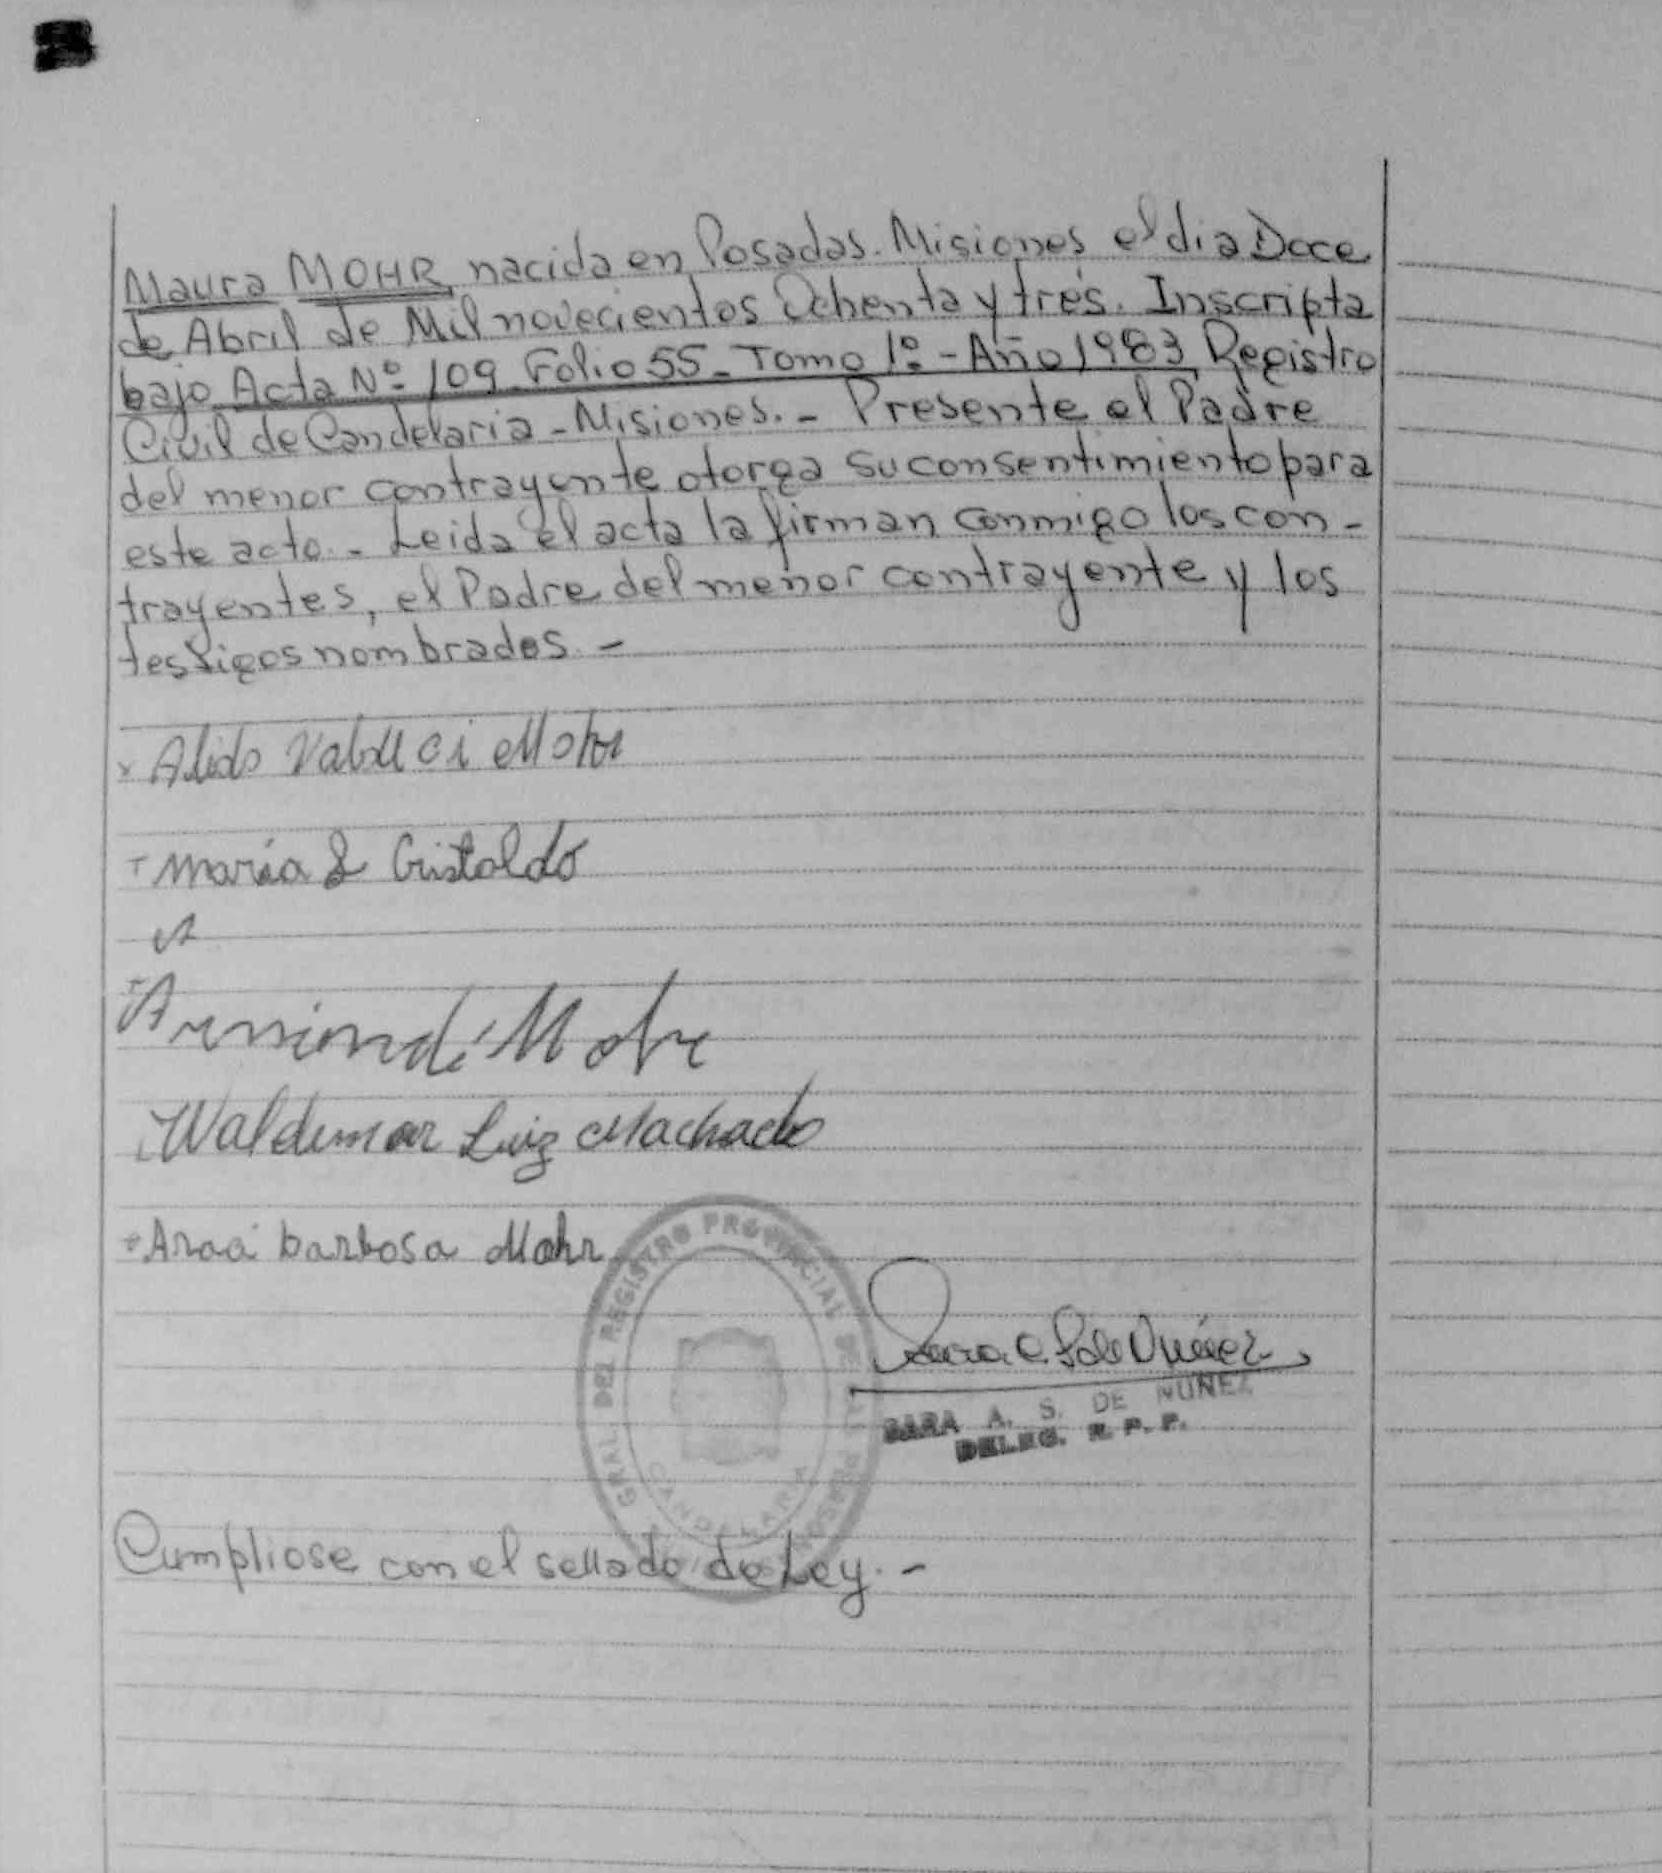 Maura MOHR, nacida en Posadas. Misiones el dia Doce
de Abril de Mil novecientos Ochenta y tres. Inscripta
bajo Acta Nº 109 Folio 55 - Tomo 1º - Año 1983 Registro
Civil de Candelaria - Misiones. - Presente el Padre
del menor contrayente otorga su consentimiento para
este acto. - Leida el acta la firman conmigo los con-
trayentes, el Padre del menor contrayente y los
testigos nombrados. -
Alido Mohr
María Cristaldo
Mohr
Waldemar Luiz Machado
Barbosa Mohr
GRAL. DEL REGISTRO PROVINCIAL DE LAS PERSONAS
CANDELARIA
SARA A. S. DE NUÑEZ
DELEG. R. P. P.
Cumpliose con el sellado de Ley. -